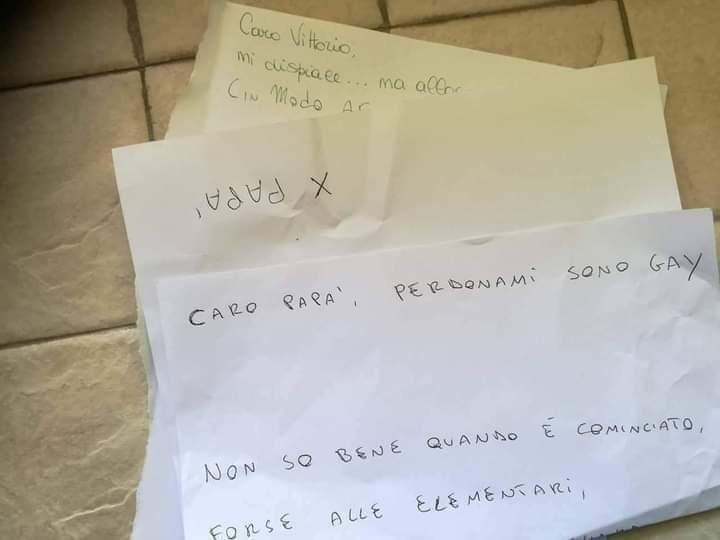 Caro Vittorio,
mi dispiace... ma
(in modo
X PAPA'
CARO PAPA', PERDONAMI SONO GAY
NON SO BENE QUANDO È COMINCIATO,
FORSE ALLE ELEMENTARI,